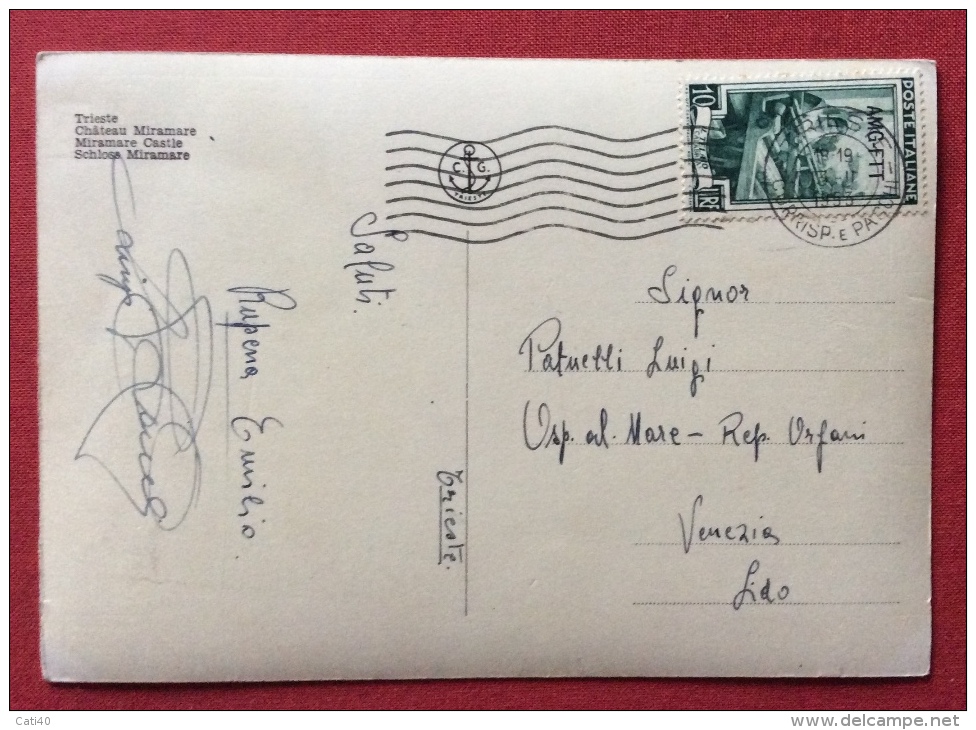 Trieste
Château Miramare
Miramare Castle
Schloss Miramare
C. G.
TRIESTE
10
LIRE
POSTE ITALIANE
AMG-FTT
CORRISP. E PA
Saluti.
Rupena Emilio.
Trieste.
Signor
Patuelli Luigi
Osp. al. Mare - Rep. Orfani
Venezia
Lido
Cati40
www.delcampe.net